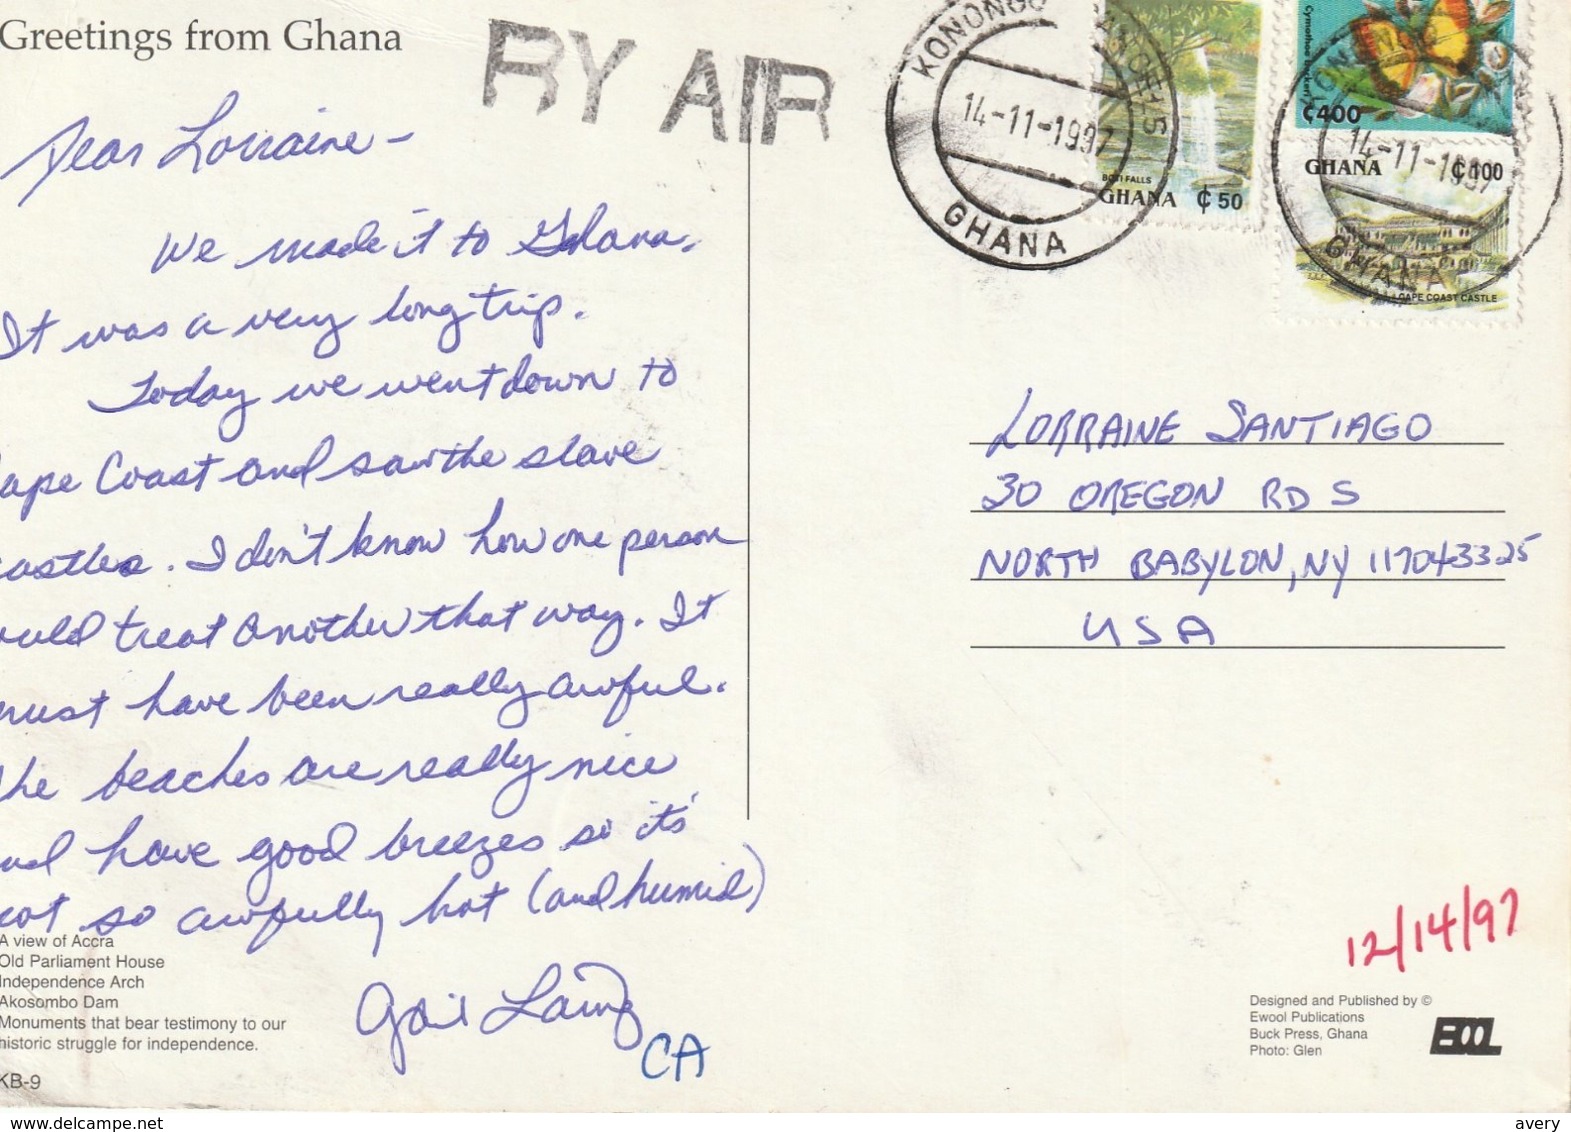 Greetings from Ghana
BY AIR
Dear Lorraine –
We made it to Ghana.
It was a very long trip.
Today we went down to
ape Coast and saw the slave
astles. I don't know how one person
ould treat another that way. It
must have been really awful.
The beaches are really nice
and have good breezes so it's
not so awfully hot (and humid)
Gail
CA
A view of Accra
Old Parliament House
Independence Arch
Akosombo Dam
Monuments that bear testimony to our
historic struggle for independence.
KB-9
KONONGO
14-11-1997
GHANA
BOTI FALLS
GHANA ₵50
Cymothoe
₵400
14-11-1997
GHANA ₵100
GHANA
CAPE COAST CASTLE
LORRAINE SANTIAGO
30 OREGON RD S
NORTH BABYLON, NY 117043325
USA
12/14/97
Designed and Published by ©
Ewool Publications
Buck Press, Ghana
Photo: Glen
EOOL
delcampe.net
avery